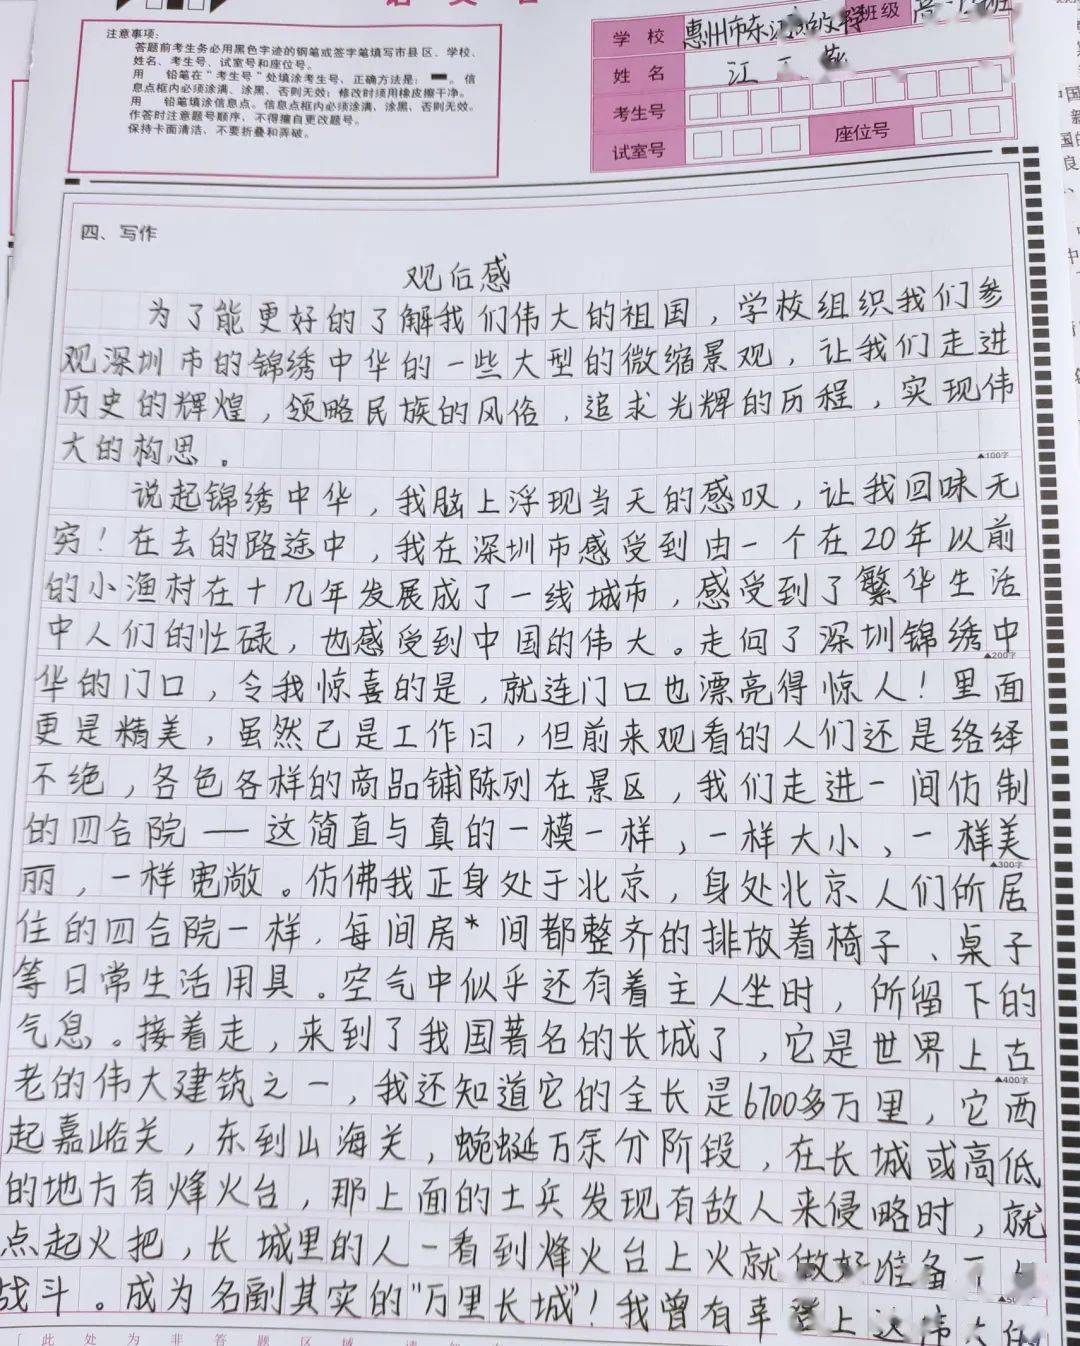 注意事项：
答题前考生务必用黑色字迹的钢笔或签字笔填写市县区、学校、
姓名、考生号、试室号和座位号。
用 铅笔在“考生号”处填涂考生号、正确方法是： 。信
息点框内必须涂满、涂黑、否则无效；修改时须用橡皮擦干净。
用 铅笔填涂信息点。信息点框内必须涂满、涂黑、否则无效。
作答时注意题号顺序，不得擅自更改题号。
保持卡面清洁、不要折叠和弄破。
学 校 惠州市东江 学 班级 高
姓 名 江
考生号
试室号 座位号
四、写作
观后感
为了能更好的了解我们伟大的祖国，学校组织我们参
观深圳市的锦绣中华的一些大型的微缩景观，让我们走进
历史的辉煌，领略民族的风俗，追求光辉的历程，实现伟
大的构思。
▲100字
说起锦绣中华，我脑上浮现当天的感叹，让我回味无
穷！在去的路途中，我在深圳市感受到由一个在20年以前
的小渔村在十几年发展成了一线城市，感受到了繁华生活
中人们的忙碌，也感受到中国的伟大。走向了深圳锦绣中
▲200字
华的门口，令我惊喜的是，就连门口也漂亮得惊人！里面
更是精美，虽然已是工作日，但前来观看的人们还是络绎
不绝，各色各样的商品铺陈列在景区，我们走进一间仿制
的四合院——这简直与真的一模一样，一样大小、一样美
▲300字
丽，一样宽敞。仿佛我正身处于北京，身处北京人们所居
住的四合院一样，每间房*间都整齐的排放着椅子、桌子
等日常生活用具。空气中似乎还有着主人坐时，所留下的
气息。接着走，来到了我国著名的长城了，它是世界上古
老的伟大建筑之一，我还知道它的全长是6700多万里，它西
▲400字
起嘉峪关，东到山海关，蜿蜒万余分阶段，在长城或高低
的地方有烽火台，那上面的士兵发现有敌人来侵略时，就
点起火把，长城里的人一看到烽火台上火就做好准备
战斗。成为名副其实的“万里长城”！我曾有幸登上这伟大的
此处为非答题区域